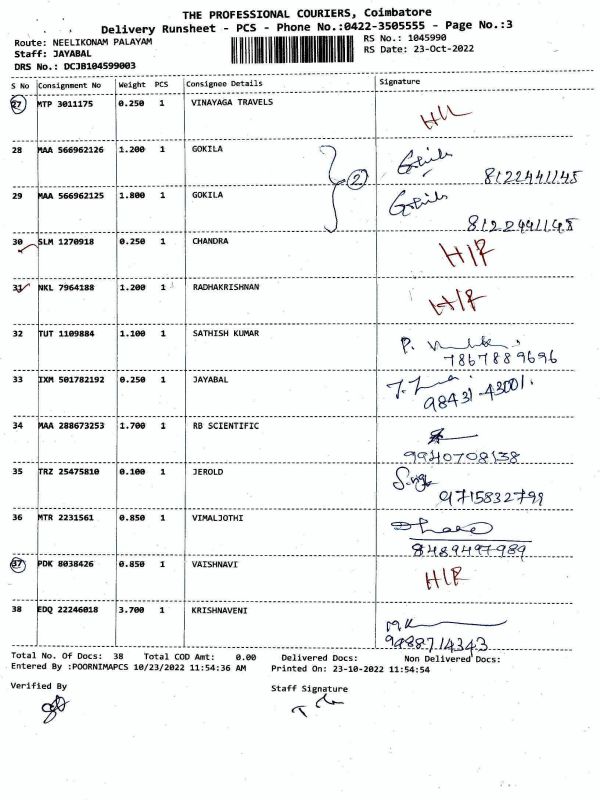 THE PROFESSIONAL COURIERS, Coimbatore
Delivery Runsheet - PCS - Phone No.:0422-3505555 - Page No.:3
Route: NEELIKONAM PALAYAM
RS No.: 1045990
Staff: JAYABAL
RS Date: 23-Oct-2022
DRS No.: DCJB104599003
S No Consignment No Weight PCS Consignee Details Signature
27 MTP 3011175 0.250 1 VINAYAGA TRAVELS
28 MAA 566962126 1.200 1 GOKILA Gokila
2 8122441145
29 MAA 566962125 1.800 1 GOKILA Gokila
8122441145
30 SLM 1270918 0.250 1 CHANDRA H/R
31 NKL 7964188 1.200 1 RADHAKRISHNAN H/R
32 TUT 1109884 1.100 1 SATHISH KUMAR P.
7867889696
33 IXM 501782192 0.250 1 JAYABAL
98431-43001.
34 MAA 288673253 1.700 1 RB SCIENTIFIC
9940708138
35 TRZ 25475810 0.100 1 JEROLD
9715832799
36 MTR 2231561 0.850 1 VIMALJOTHI
8489497989
37 PDK 8038426 0.850 1 VAISHNAVI H/R
38 EDQ 22246018 3.700 1 KRISHNAVENI
9488714343
Total No. Of Docs: 38 Total COD Amt: 0.00 Delivered Docs: Non Delivered Docs:
Entered By :POORNIMAPCS 10/23/2022 11:54:36 AM Printed On: 23-10-2022 11:54:54
Verified By
Staff Signature